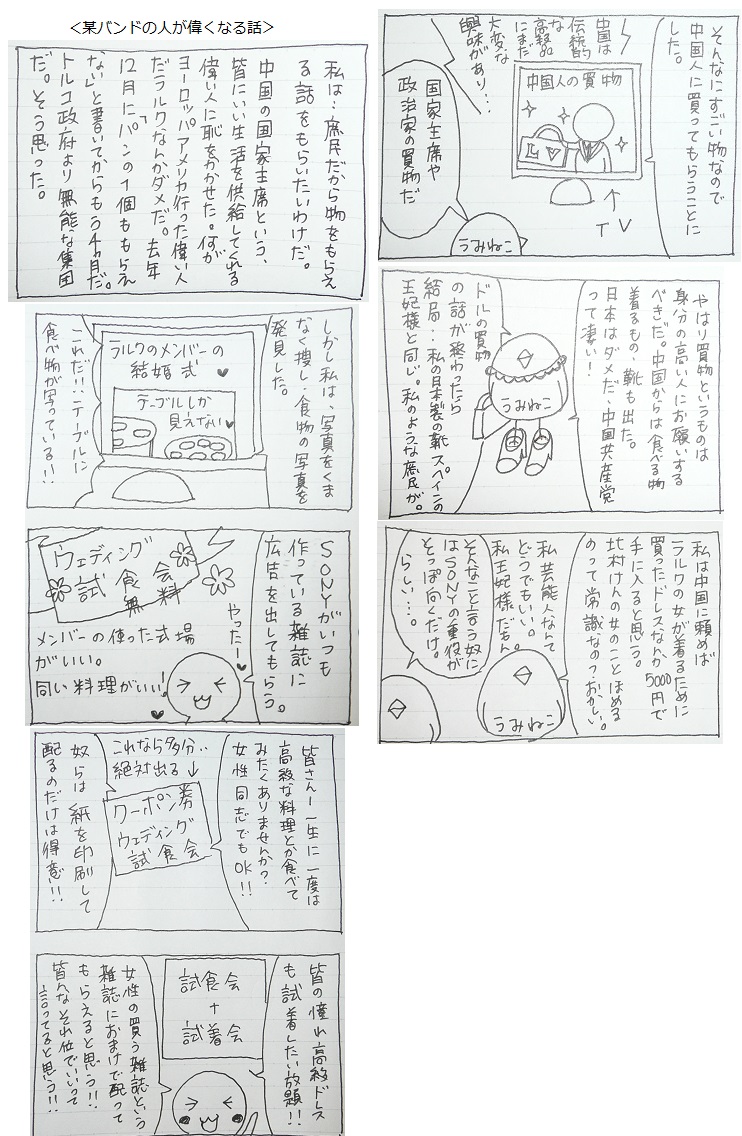 <某バンドの人が偉くなる話>
私は…庶民だから物をもらえ
る話をもらいたいわけだ。
中国の国家主席という、
皆にいい生活を供給してくれる
偉い人に恥をかかせた。何が
ヨーロッパアメリカ行った偉い人
だラルクなんかダメだ。去年
12月に「パンの1個ももらえ
ない」と書いてからもう4ヶ月だ。
トルコ政府より無能な集団
だ。そう思った。
しかし私は、写真をくま
なく捜し…食物の写真を
発見した。
ラルクのメンバーの
結婚式
テーブルしか
見えない
これだ!!…テーブルに
食べ物が写っている!!
SONYがいつも
作っている雑誌に
広告を出してもらう。
ウェディング
試食会
無料
やったー
メンバーの使った式場
がいい。
同い料理がいい!
皆さん!一生に一度は
高級な料理とか食べて
みたくありませんか?
女性同志でもOK!!
これなら多分‥
絶対出る↓
クーポン券
ウェディング
試食会
奴らは紙を印刷して
配るのだけは得意!!
皆の憧れ高級ドレス
も試着したい放題!!
試食会
+
試着会
女性の買う雑誌という
雑誌におまけで配って
もらえると思う!!
皆んなそれ位でいいって
言ってると思う!!
そんなにすごい物なので
中国人に買ってもらうことに
した。
中国人の買物
LV
↑
TV
中国は
伝統的
な
高級品
にまだ
大変な
興味があり…
国家主席や
政治家の買物だ
うみねこ
やはり買物というものは
身分の高い人にお願いする
べきだ。中国からは食べる物
着るもの、靴も出た。
日本はダメだ、中国共産党
って凄い!
うみねこ
ドルの買物
の話が終わったら
結局…私の日本製の靴スペインの
王妃様と同じ。私のような庶民が。
私は中国に頼めば
ラルクの女が着るために
買ったドレスなんか5000円で
手に入ると思う。
北村けんの女のことほめる
のって常識なの?おかしい。
私芸能人なんて
どうでもいい。
私王妃様だもん。
そんなこと言う奴に
はSONYの重役が
そっぽ向くだけ。
らしい…。
うみねこ